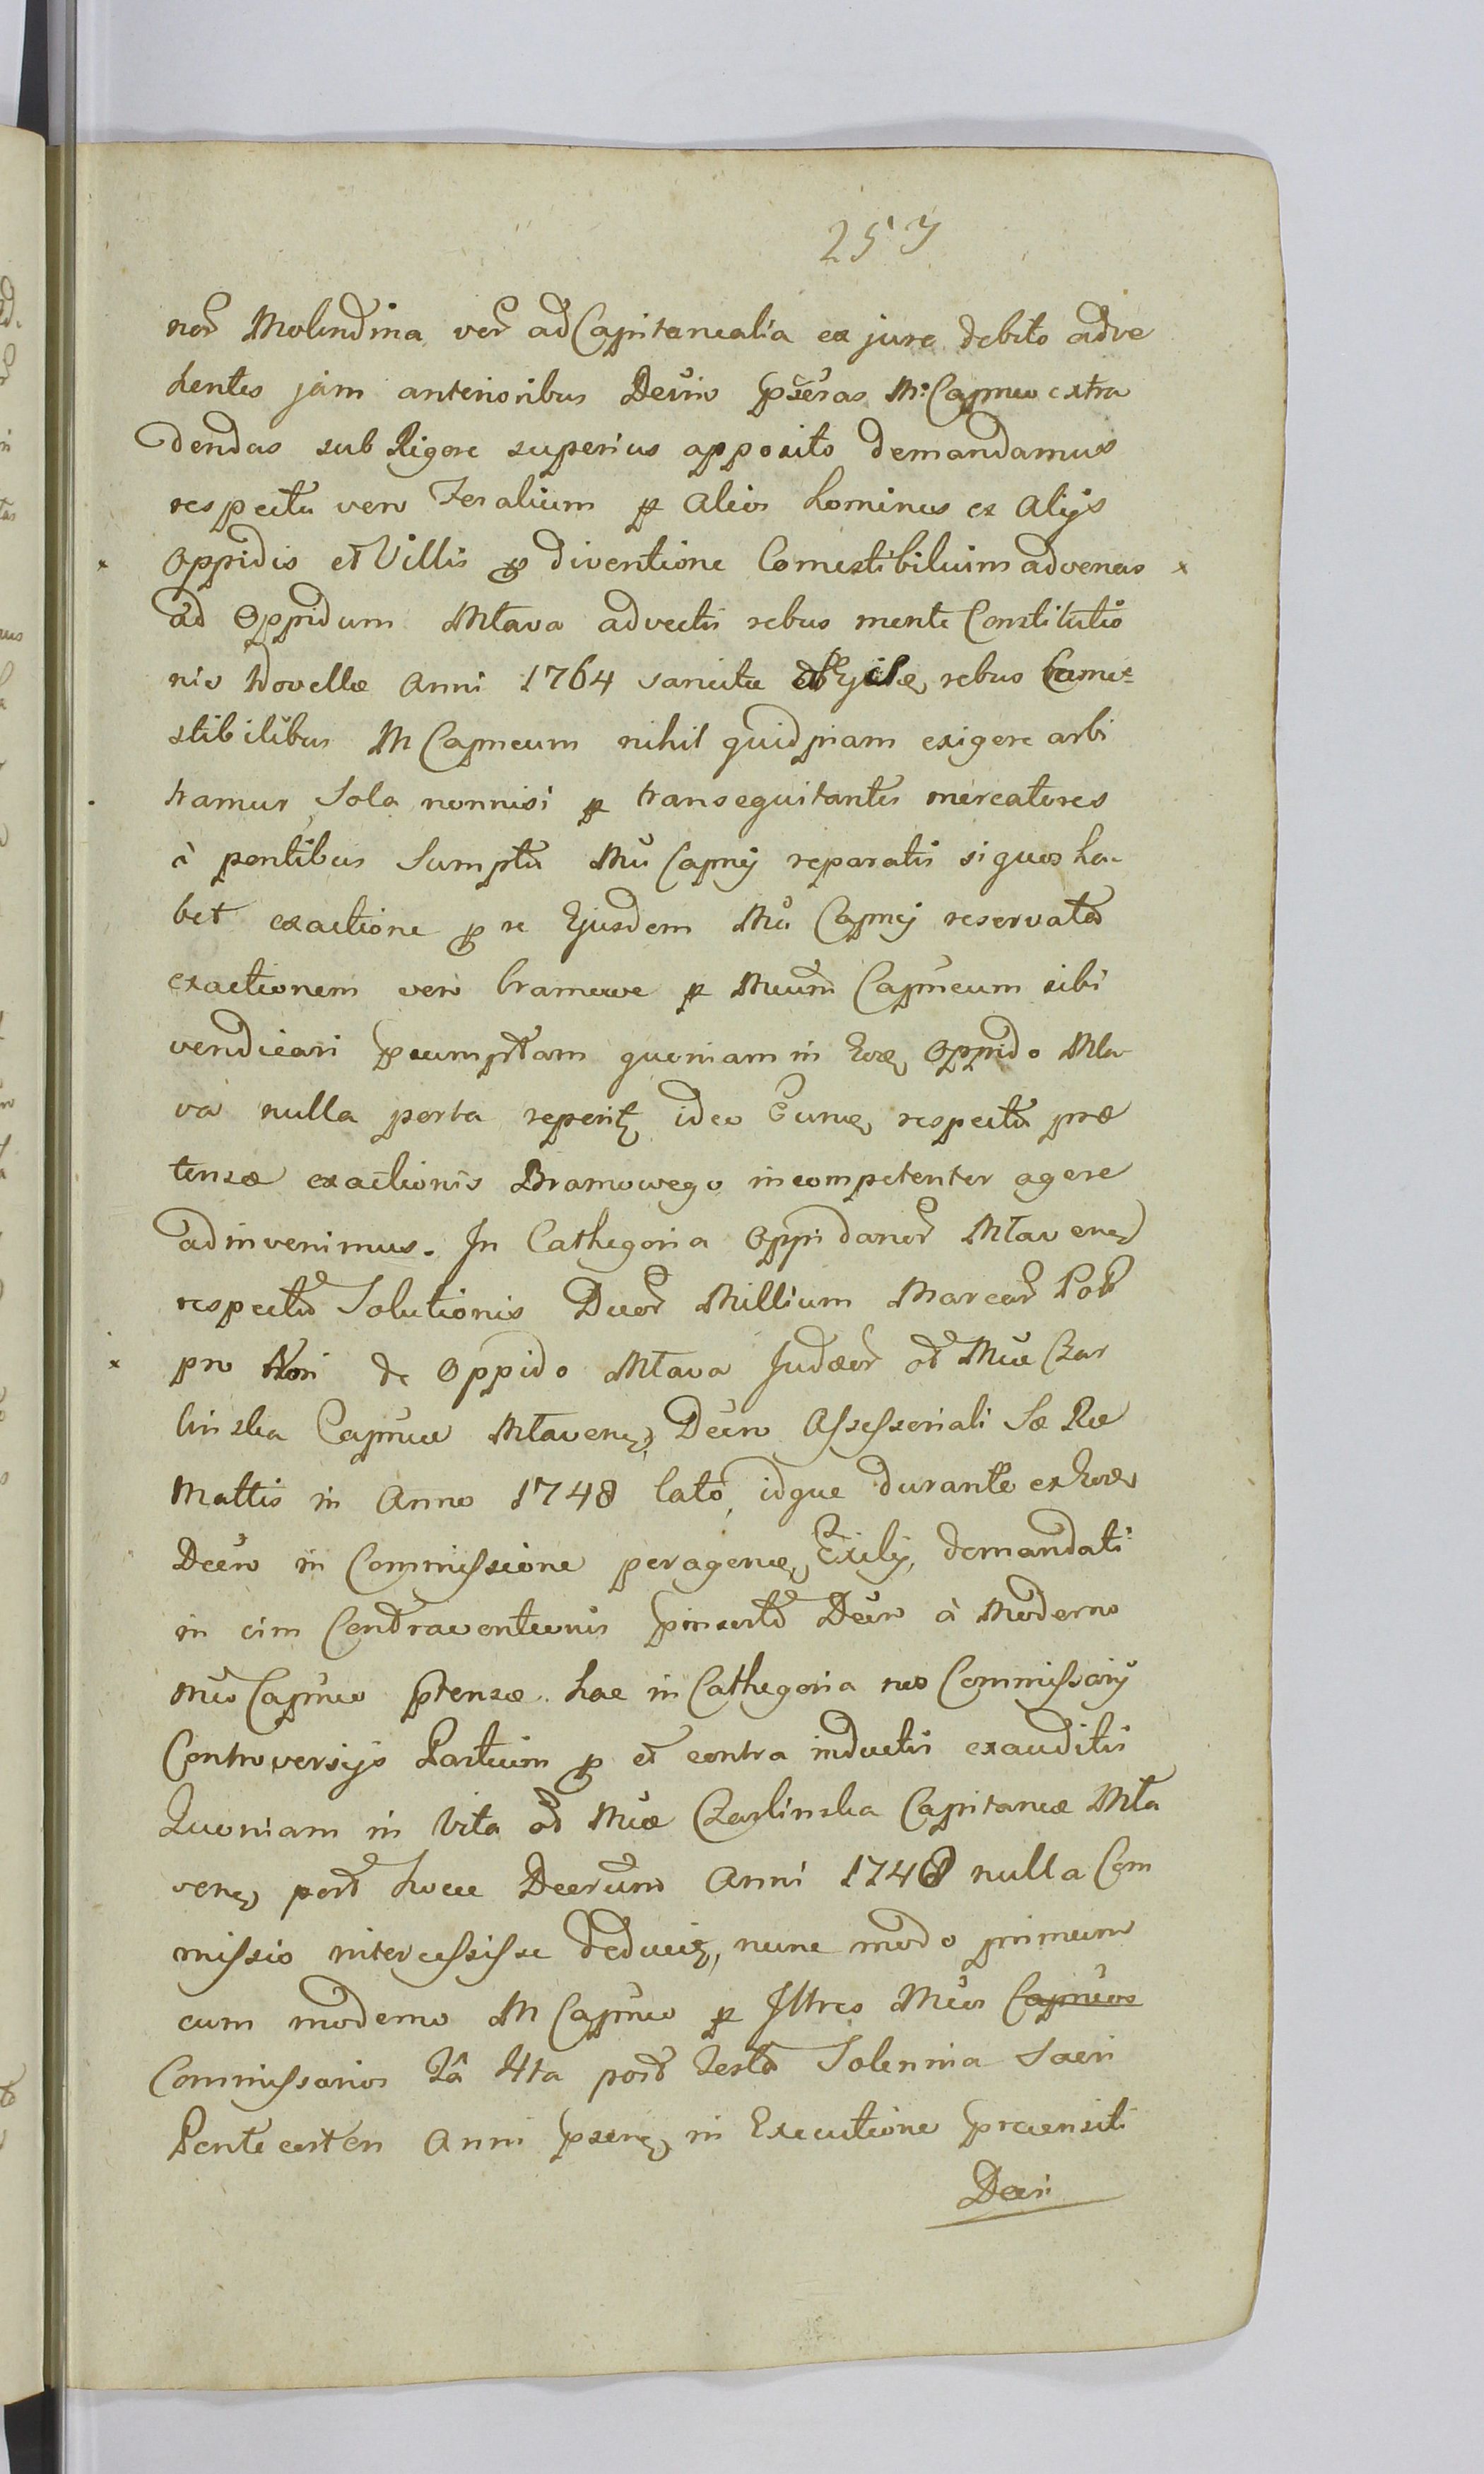 257
nor Molendina ver ad Capitanealia ex jure debito adve
hentes jam anterioribus Decris pseras M: Capneo extra
dendas sub Rigore superius apposito demandamus
respectu vero Foralium p alios homines ex alijs
oppidis et Villis p diventione Comestibilium advenas x
ad Oppidum Mlava advectis rebus mente Constitutio
nis Novellæ Anni 1764 sancitæ rebus Come=
stibilibus M Capneum nihil quidpiam exigere arbi
tramur, Sola nonnisi p transequitantes mercatores
à pontibus Sumptu Mci Capnej reparatis si quos ha-
bet exactione p se Ejusdem Mci Capnej reservata
exactionem vero bramowe p Mcum Capneum sibi
vendicari psumptam quoniam in Eode Oppido Mla-
va nulla porta reperit, ideo Eund, respectu præ
tensæ exactionis Bramowego incompetenter agere
adinvenimus. In Cathegoria Oppidanor Mlaven
respectu Solutionis Duor Millium Marcar Pol
x pro Non de oppido Mlava Judæor od Mca Czar
linska Capnea Mlaven, Decro Assessoriali Sæ Ræ
Mattis in Anno 1748 lato, idque durante ex Eode
Decro in Commissione peragend, Exilij, demandati
in vim Contraventionis pinserto Decro à Moderno
Mco Capneo ptensæ. hac in Cathegoria nos Commissarij
Controversijs Partium p et contra inductis exauditis
Quoniam in Vita od Mcæ Czarlinska Capitaneæ Mla
ven, post hocce Decretum Anni 1748 nulla Com
missio intercessisse deducit, nunc modo primum
cum moderno M Capneo p Illres Mcos Capneos
Commissarios Fa 4ta post Festa Solennia Sacri
Pentecosten Anni psen, in Executione precensiti
Decri